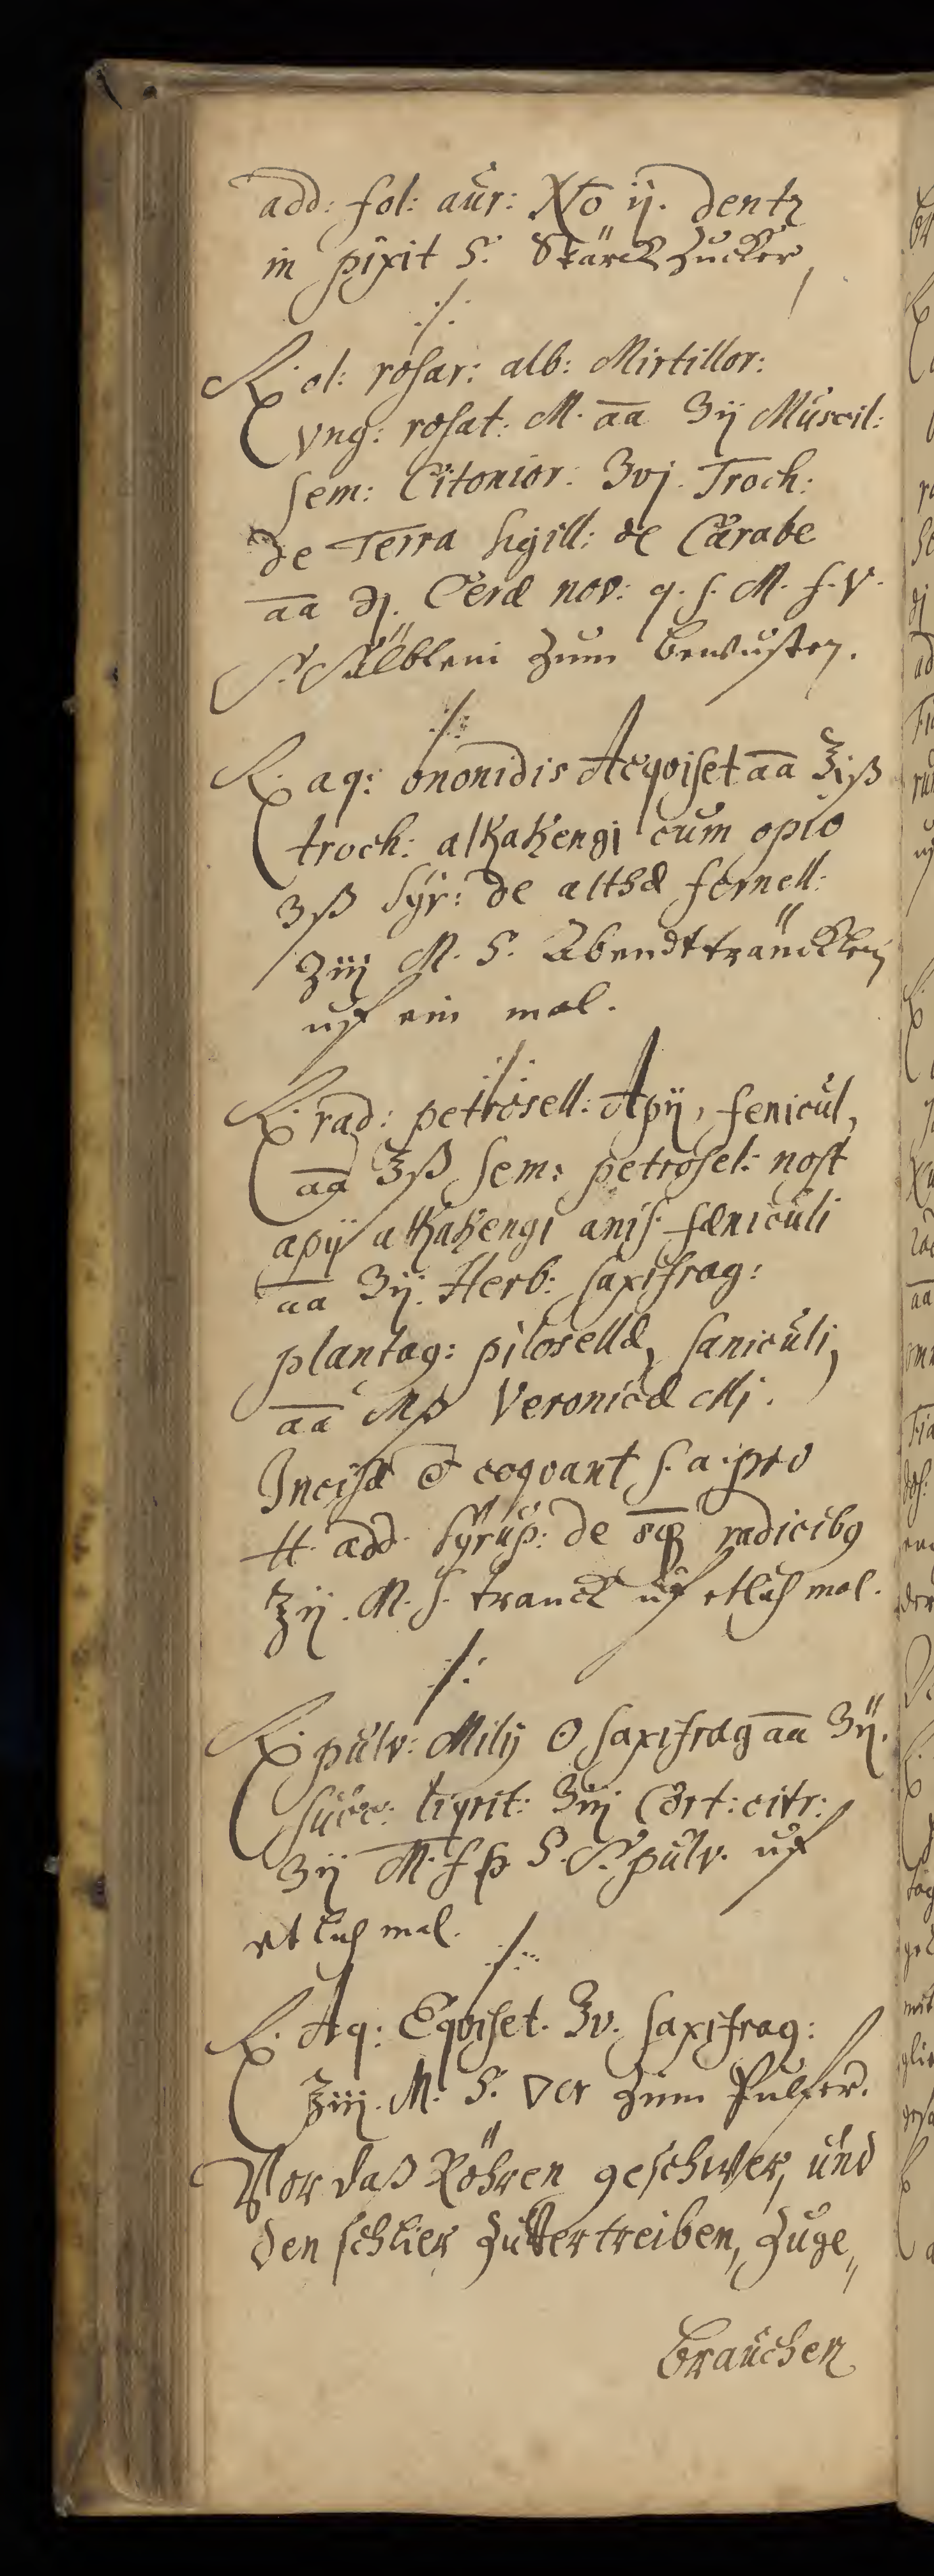 add: fol: aur: No ij. dentz
in pixit S. Stärckzucker,
./.
℞. ol: rosar: alb: Mirtillor:
vng: rosat: M. aa ʒij Muscil:
sem: Citonior: ʒvj. Troch:
de Terra sigill: de Carabe
aa ℈j. Ceræ nov: q. s. M. f. V.
S. Sälblein zum bewusten.
./.
℞. aq: ononidis Acqviset aa ℥iß
troch: alkakengi cum opio
ʒß Syr: de althæ fernell:
ʒiij M. S. Abendtträncklein
uf ein mal.
./.
℞. rad: petrosell: Apij, fenicul,
aa ℥ß sem: petrosel: nost
apij alkakengi anis. fæniculi
aa ʒij. Herb: saxifrag:
plantag: pilosellæ, saniculi,
aa Mß Veronicæ Mj.
Incisa et coqvant s. a. pro
tt. add. Syrup: de radicibq
℥ij. M. S. tranck uf etlich mal.
./.
℞. pulv: Milij ʘ saxifrag aa ʒij.
succ: liqrit: ʒiij Cort: citr:
ʒij M. f p S. pulv. uf
etlich mal.
./.
℞. Aq: Eqviset. ʒv. saxifrag:
℥iij. M. S. zum Pulfer.
Vor daß Röhren geschwer, und
den schlier zuvertreiben, zuge„
brauchen